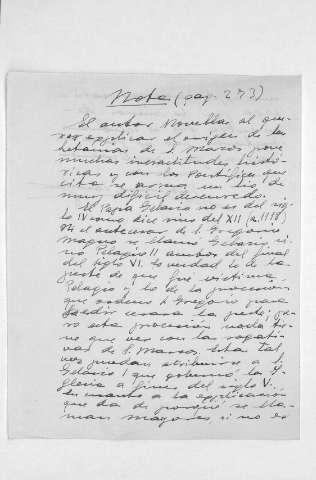 Nota (pag. 273)
El autor Novellas al que-
rer explicar el origen de las
letanias de S. Marcos pone
muchas inexactitudes histó-
ricas y con los Pontífices que
cita se arma un lío de
muy difícil desenredo.
El Papa Gelasio no es del sig-
lo IV como dice sino del XII (a. 1118)
Ni el antecesor de S. Gregorio
Magno se llamó Gelasio si-
no Pelagio II ambos del final
del siglo VI. Es verdad lo de la
peste de que fue víctima
Pelagio y lo de la procesión
que ordenó S. Gregorio para
hacer cesara la peste, pe-
ro esta procesión nada tie-
ne que ver con las rogati-
vas de S. Marcos. Esta tal
vez puedan atribuirse a S.
Gelasio I que gobernó la I-
glesia a fines del siglo V.
En cuanto a la explicación
que da de porqué se lla-
man mayores si no es